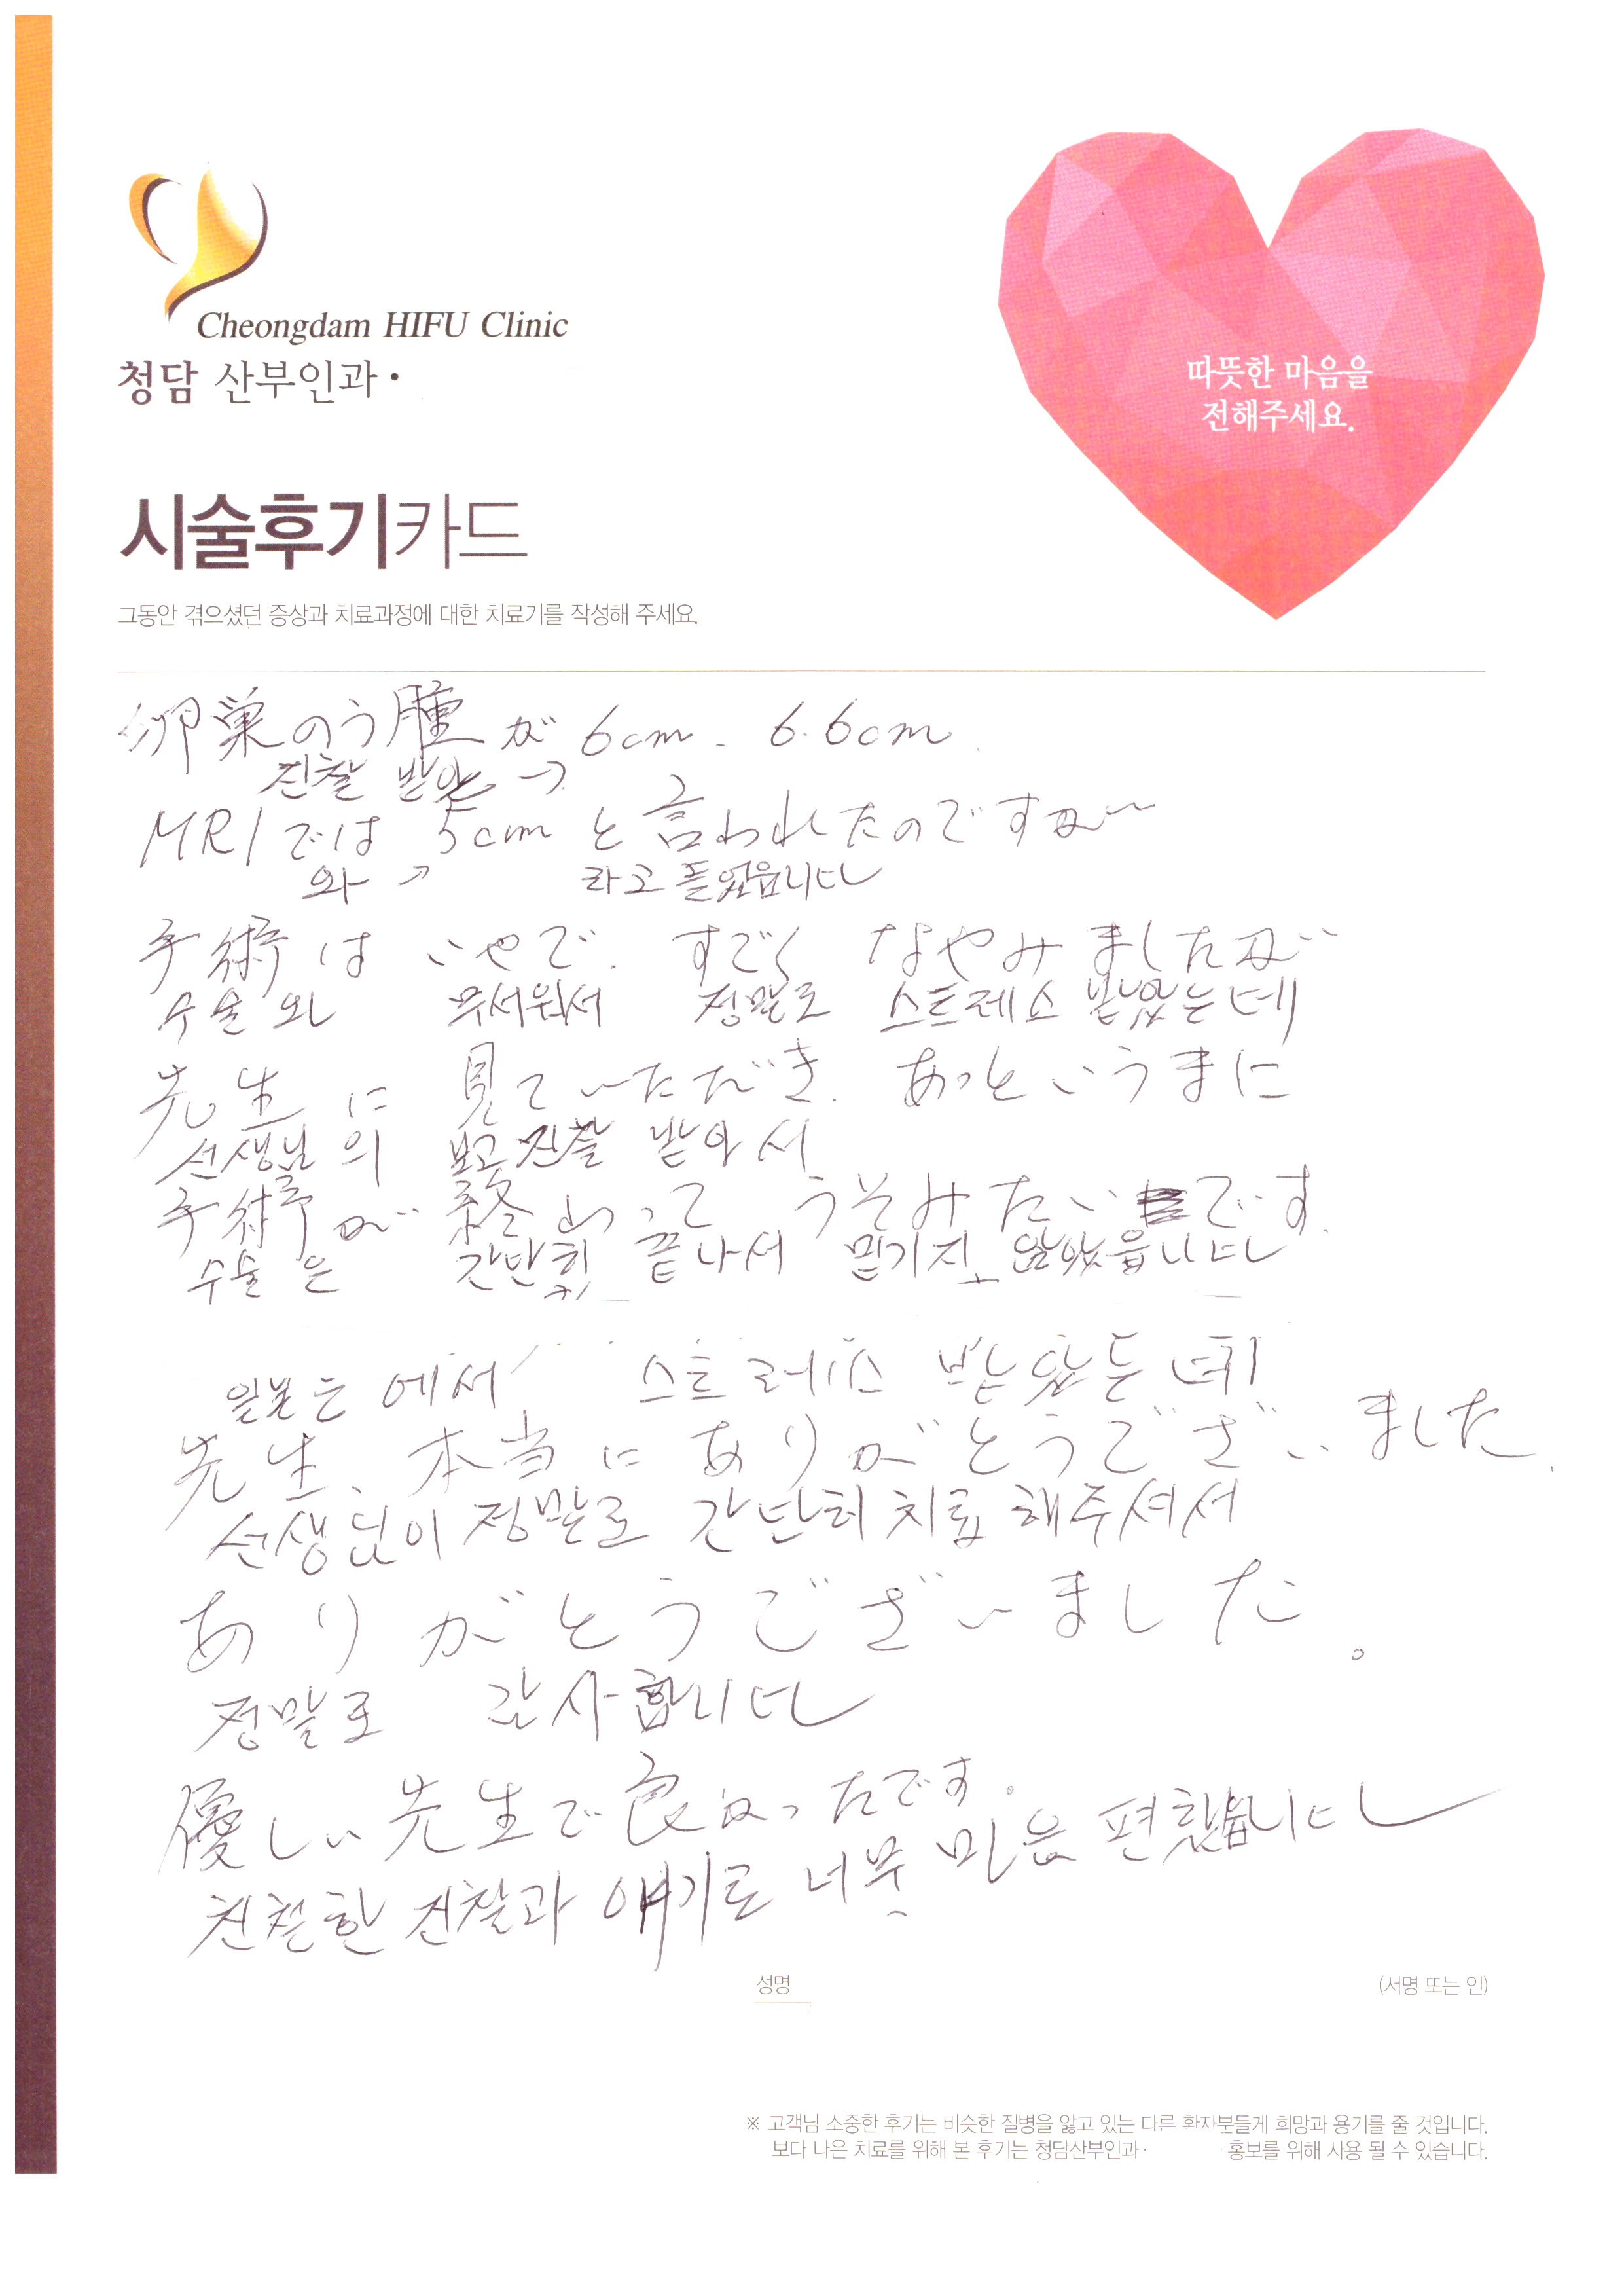 Cheongdam HIFU Clinic
청담 산부인과·
따뜻한 마음을
전해주세요.
시술후기카드
그동안 겪으셨던 증상과 치료과정에 대한 치료기를 작성해 주세요.
卵巣のう腫が 6cm. 6.6cm
진찰 →
MRIでは 5cm と言われたのですが
와 → 라고 들었읍니다
手術は いやで. すごく なやみましたが
수술 무서워서 정말로 스트레스 받았는데
先生に 見ていただき. あっというまに
선생님의 진찰 받아서
手術が 終わって うそみたいです.
수술은 간단히 끝나서 믿기지 않았읍니다
일본 에서 스트레스 받았는데
先生、本当に ありがとうございました.
선생님이 정말로 간단히 치료 해주셔서
ありがとうございました。
정말로 감사합니다
優しい先生で良かったです。
친절한 진찰과 얘기로 너무 편했읍니다
성명
(서명 또는 인)
※ 고객님 소중한 후기는 비슷한 질병을 앓고 있는 다른 환자분들게 희망과 용기를 줄 것입니다.
보다 나은 치료를 위해 본 후기는 청담산부인과· 홍보를 위해 사용 될 수 있습니다.